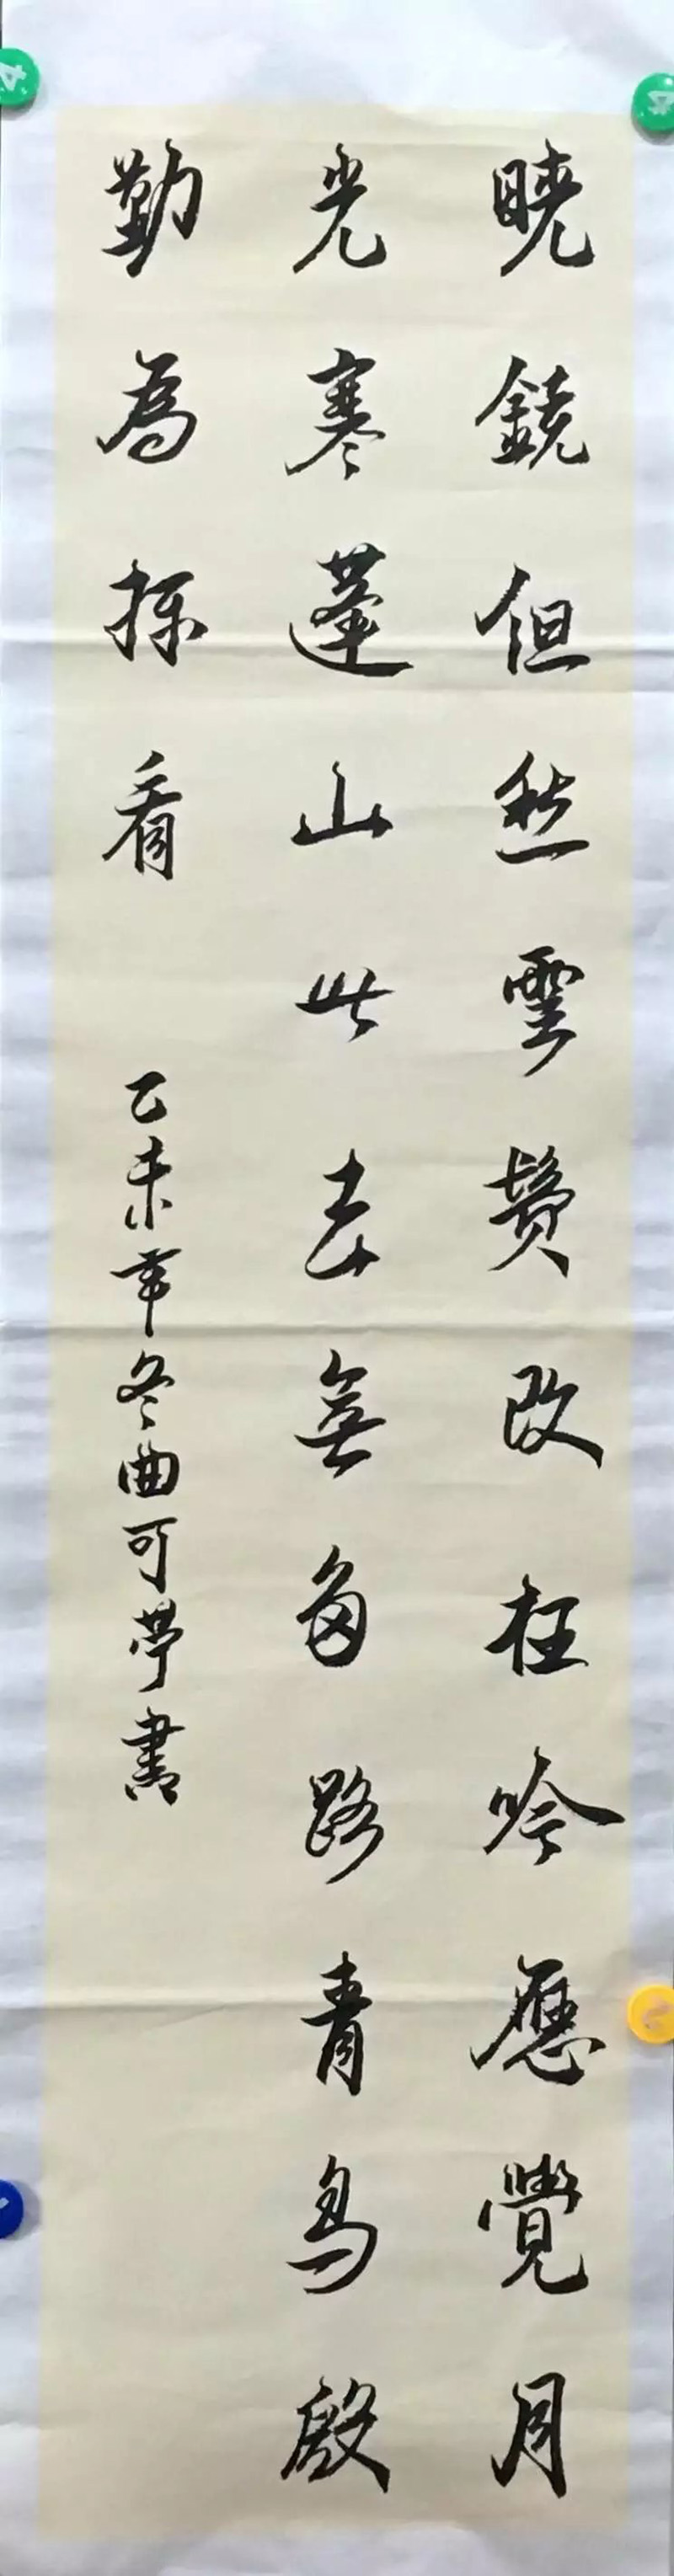 曉鏡但愁雲鬢改枉吟應覺月
光寒蓬山此去無多路青鳥殷
勤為探看
乙未年冬曲可書